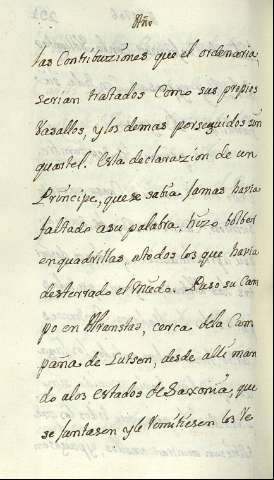 Año
las Contribuziones que el ordenaria,
serian tratados como sus propios
Vasallos, y los demas perseguidos sin
quartel. Esta declarazzion de un
Principe, que se sabia jamas havia
faltado a su palabra, hizo bolber
en quadrillas, a todos los que havia
desterrado el miedo. Puso su Cam
po en Alranstad, cerca de la Cam
paña de Lutsen, desde alli man
do a los estados de Saxonia, que
se juntasen y le remitiesen los Re